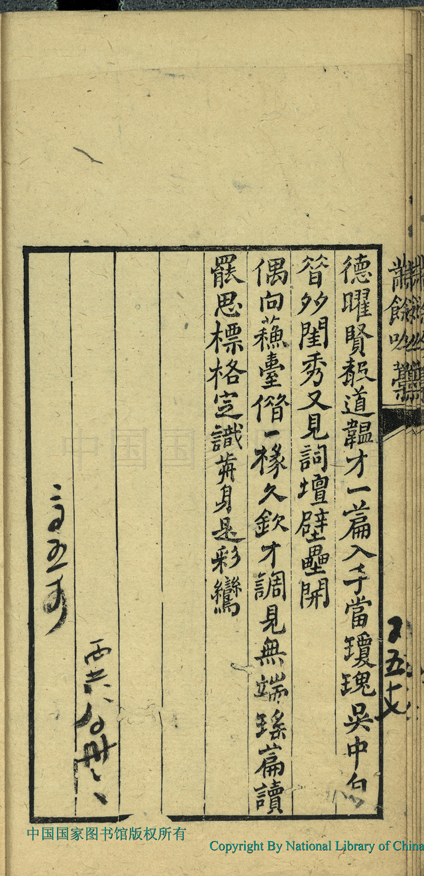 餘吟藁
德曜賢道韞才一篇入手當瓊瑰吳中自
昔多閨秀又見詞壇壁壘開
偶向蘓臺借一椽久欽才調見無端瑤篇讀
罷思標格定識前身是彩鸞
中国国家图书馆版权所有
Copyright By National Library of China